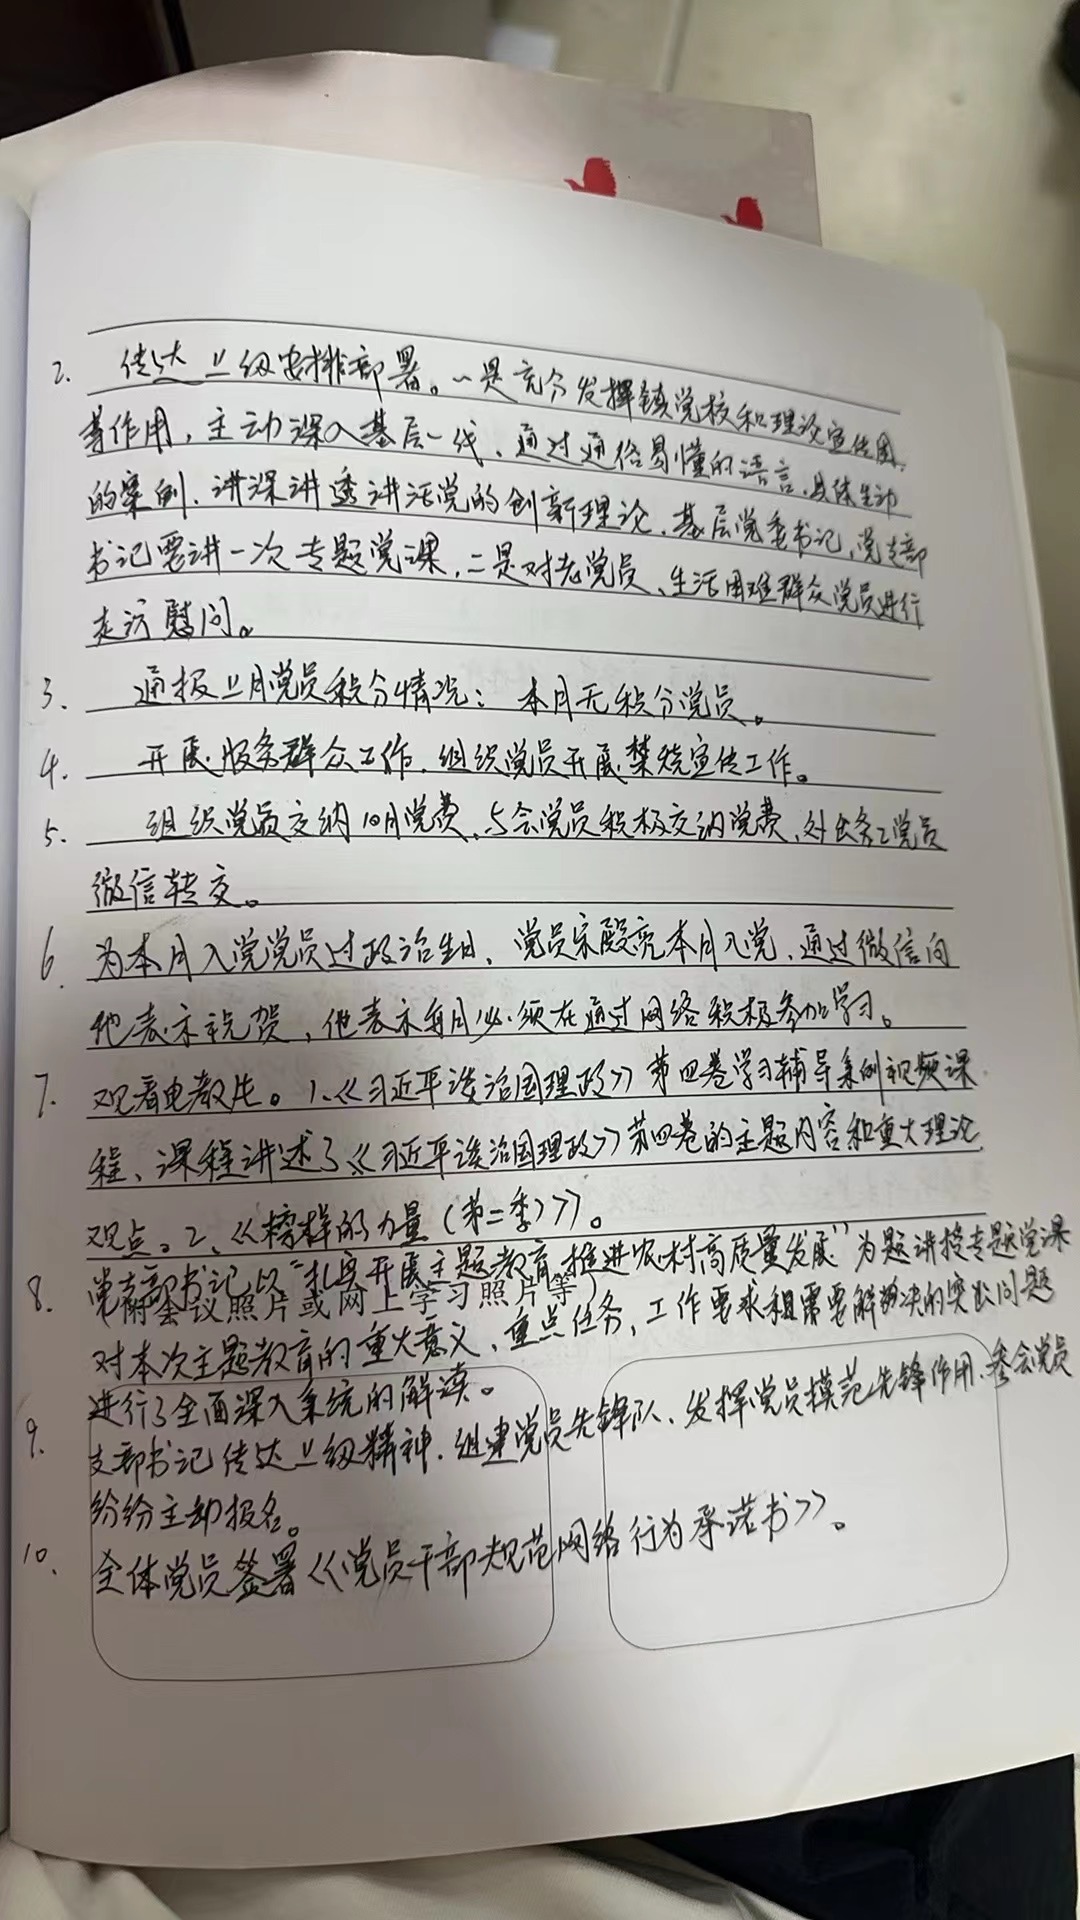 2. 传达上级安排部署。一是充分发挥镇党校和理论宣传团
等作用，主动深入基层一线，通过通俗易懂的语言、具体生动
的案例，讲深讲透讲活党的创新理论，基层党委书记，党支部
书记要讲一次专题党课，二是对老党员、生活困难群众党员进行
走访慰问。
3. 通报上月党员积分情况：本月无积分党员。
4. 开展服务群众工作，组织党员开展禁烧宣传工作。
5. 组织党员交纳10月党费，与会党员积极交纳党费，外出务工党员
微信转交。
6. 为本月入党党员过政治生日，党员宋殿亮本月入党，通过微信向
他表示祝贺，他表示每月必须在通过网络积极参加学习。
7. 观看电教片。1、《习近平谈治国理政》第四卷学习辅导系列视频课
程，课程讲述了《习近平谈治国理政》第四卷的主题内容和重大理论
观点。2、《榜样的力量（第二季）》。
8. 党支部书记以“扎实开展主题教育，推进农村高质量发展”为题讲授专题党课
（附会议照片或网上学习照片等）
对本次主题教育的重大意义，重点任务，工作要求和需要解决的突出问题
进行了全面深入系统的解读。
9. 支部书记传达上级精神，组建党员先锋队，发挥党员模范先锋作用，参会党员
纷纷主动报名。
10. 全体党员签署《党员干部规范网络行为承诺书》。